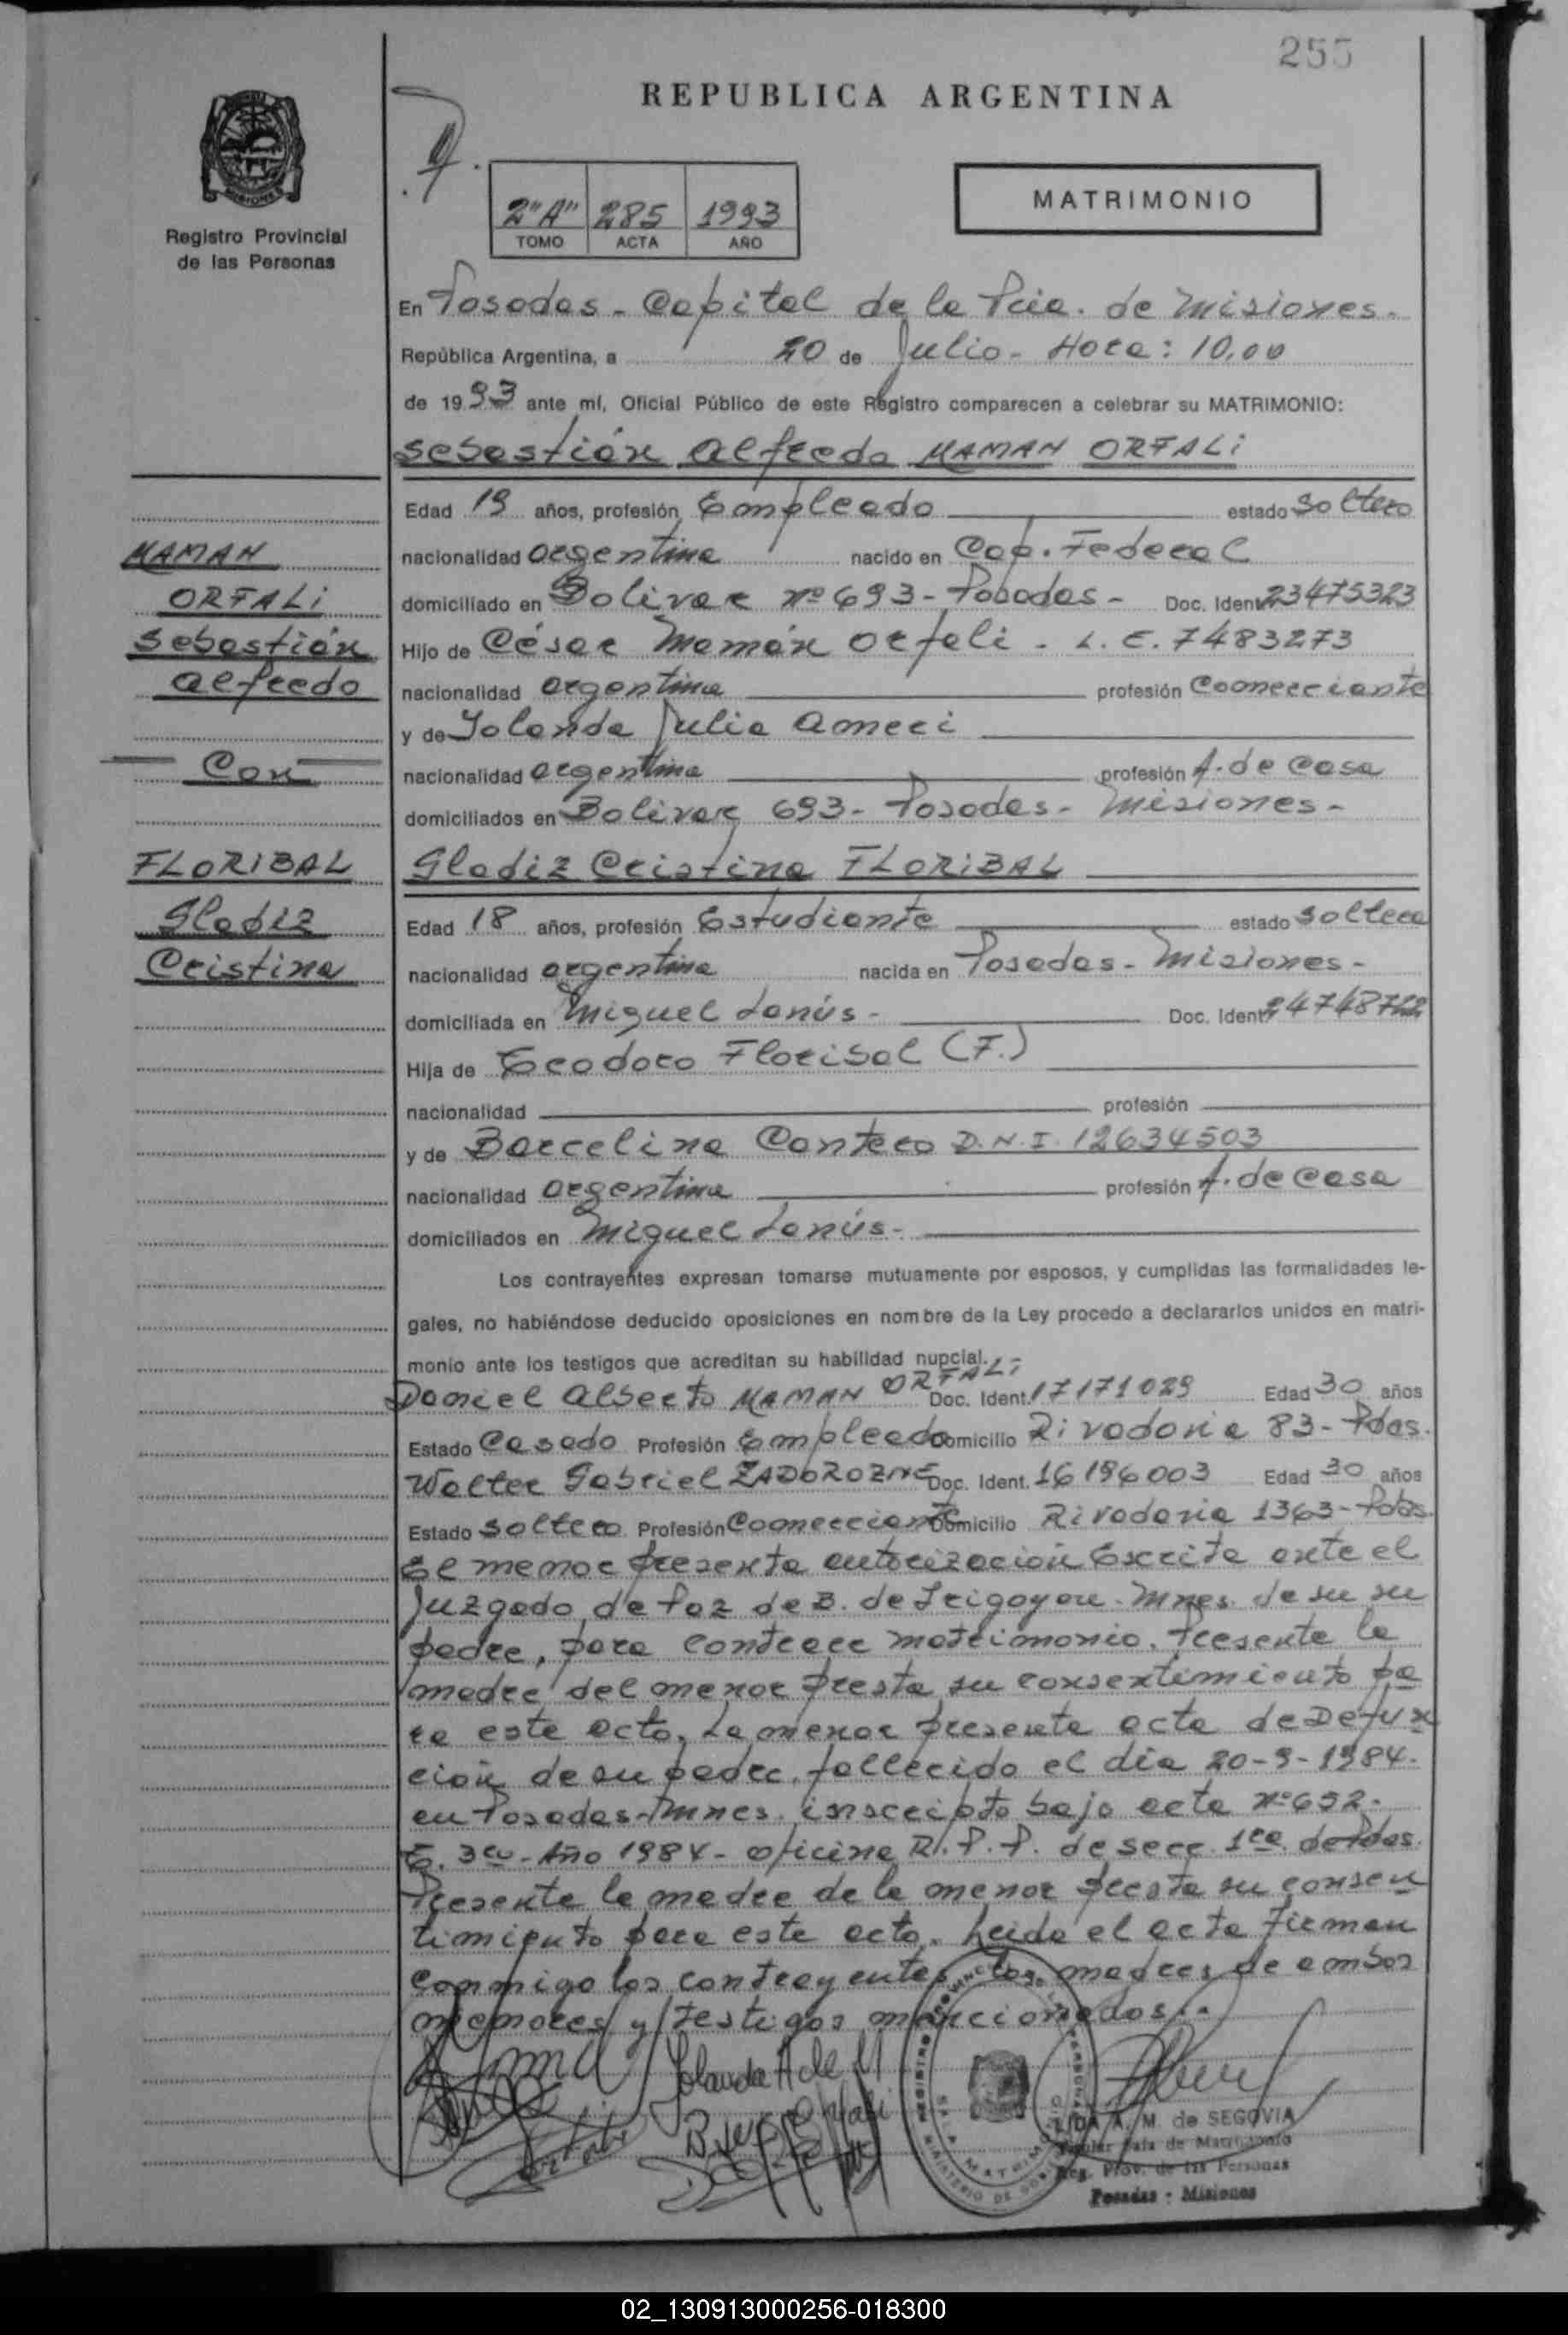 255
REPUBLICA ARGENTINA
MATRIMONIO
2"A" 285 1993
TOMO ACTA AÑO
Registro Provincial
de las Personas
En Posadas - Capital de la Pcia. de Misiones.
República Argentina, a 20 de Julio - Hora: 10,00
de 1993 ante mí, Oficial Público de este Registro comparecen a celebrar su MATRIMONIO:
Sebastián Alfredo MAMAN ORFALI
Edad 19 años, profesión Empleado estado Soltero
MAMAN
nacionalidad argentina nacido en Cap. Federal
ORFALI
domiciliado en Bolivar nº 693 - Posadas - Doc. Ident. 23475323
Sebastián
Hijo de César Mamán Orfali - L. E. 7483273
Alfredo
nacionalidad argentina profesión Comerciante
y de Yolanda Julia Ameri
Con
nacionalidad argentina profesión A. de Casa
domiciliados en Bolivar 693 - Posadas - Misiones -
FLORIBAL
Gladiz Cristina FLORIBAL
Gladiz
Edad 18 años, profesión Estudiante estado soltera
Cristina
nacionalidad argentina nacida en Posadas - Misiones -
domiciliada en Miguel Lanús - Doc. Ident.
Hija de Teodoro Floribal (F.)
nacionalidad profesión
y de Barcelina Contero D.N.I. 12634503
nacionalidad argentina profesión A. de Casa
domiciliados en Miguel Lanús -
Los contrayentes expresan tomarse mutuamente por esposos, y cumplidas las formalidades le-
gales, no habiéndose deducido oposiciones en nombre de la Ley procedo a declararlos unidos en matri-
monio ante los testigos que acreditan su habilidad nupcial.
Daniel Alberto MAMAN ORFALI - Doc. Ident. 17171029 Edad 30 años
Estado Casado Profesión Empleado Domicilio Rivadavia 83 - Pdas.
Walter Gabriel ZADOROZNE Doc. Ident. 16196003 Edad 30 años
Estado Soltero Profesión Comerciante Domicilio Rivadavia 1363 - Pdas.
El menor presenta autorización Escrita ante el
Juzgado de Paz de B. de Irigoyen. Mnes. de su su
padre, para contraer matrimonio. Presente la
madre del menor presta su consentimiento pa
ra este acto. La menor presenta acta de Defun
ción de su padre, fallecido el día 20-9-1984.
en Posadas - Mnes. inscripto bajo acta nº 692.
T. 3ro - Año 1984 - oficina R. P. P. de secc. 1ra. de Pdas.
Presente la madre de la menor presta su consen
timiento para este acto. Leida el acta Firman
conmigo los contrayentes, las madres de ambos
menores y testigos mencionados.
Yolanda A de M
Orfali
LIDA A. M. de SEGOVIA
Titular Sala de Matrimonio
Reg. Prov. de las Personas
Posadas - Misiones
02_130913000256-018300